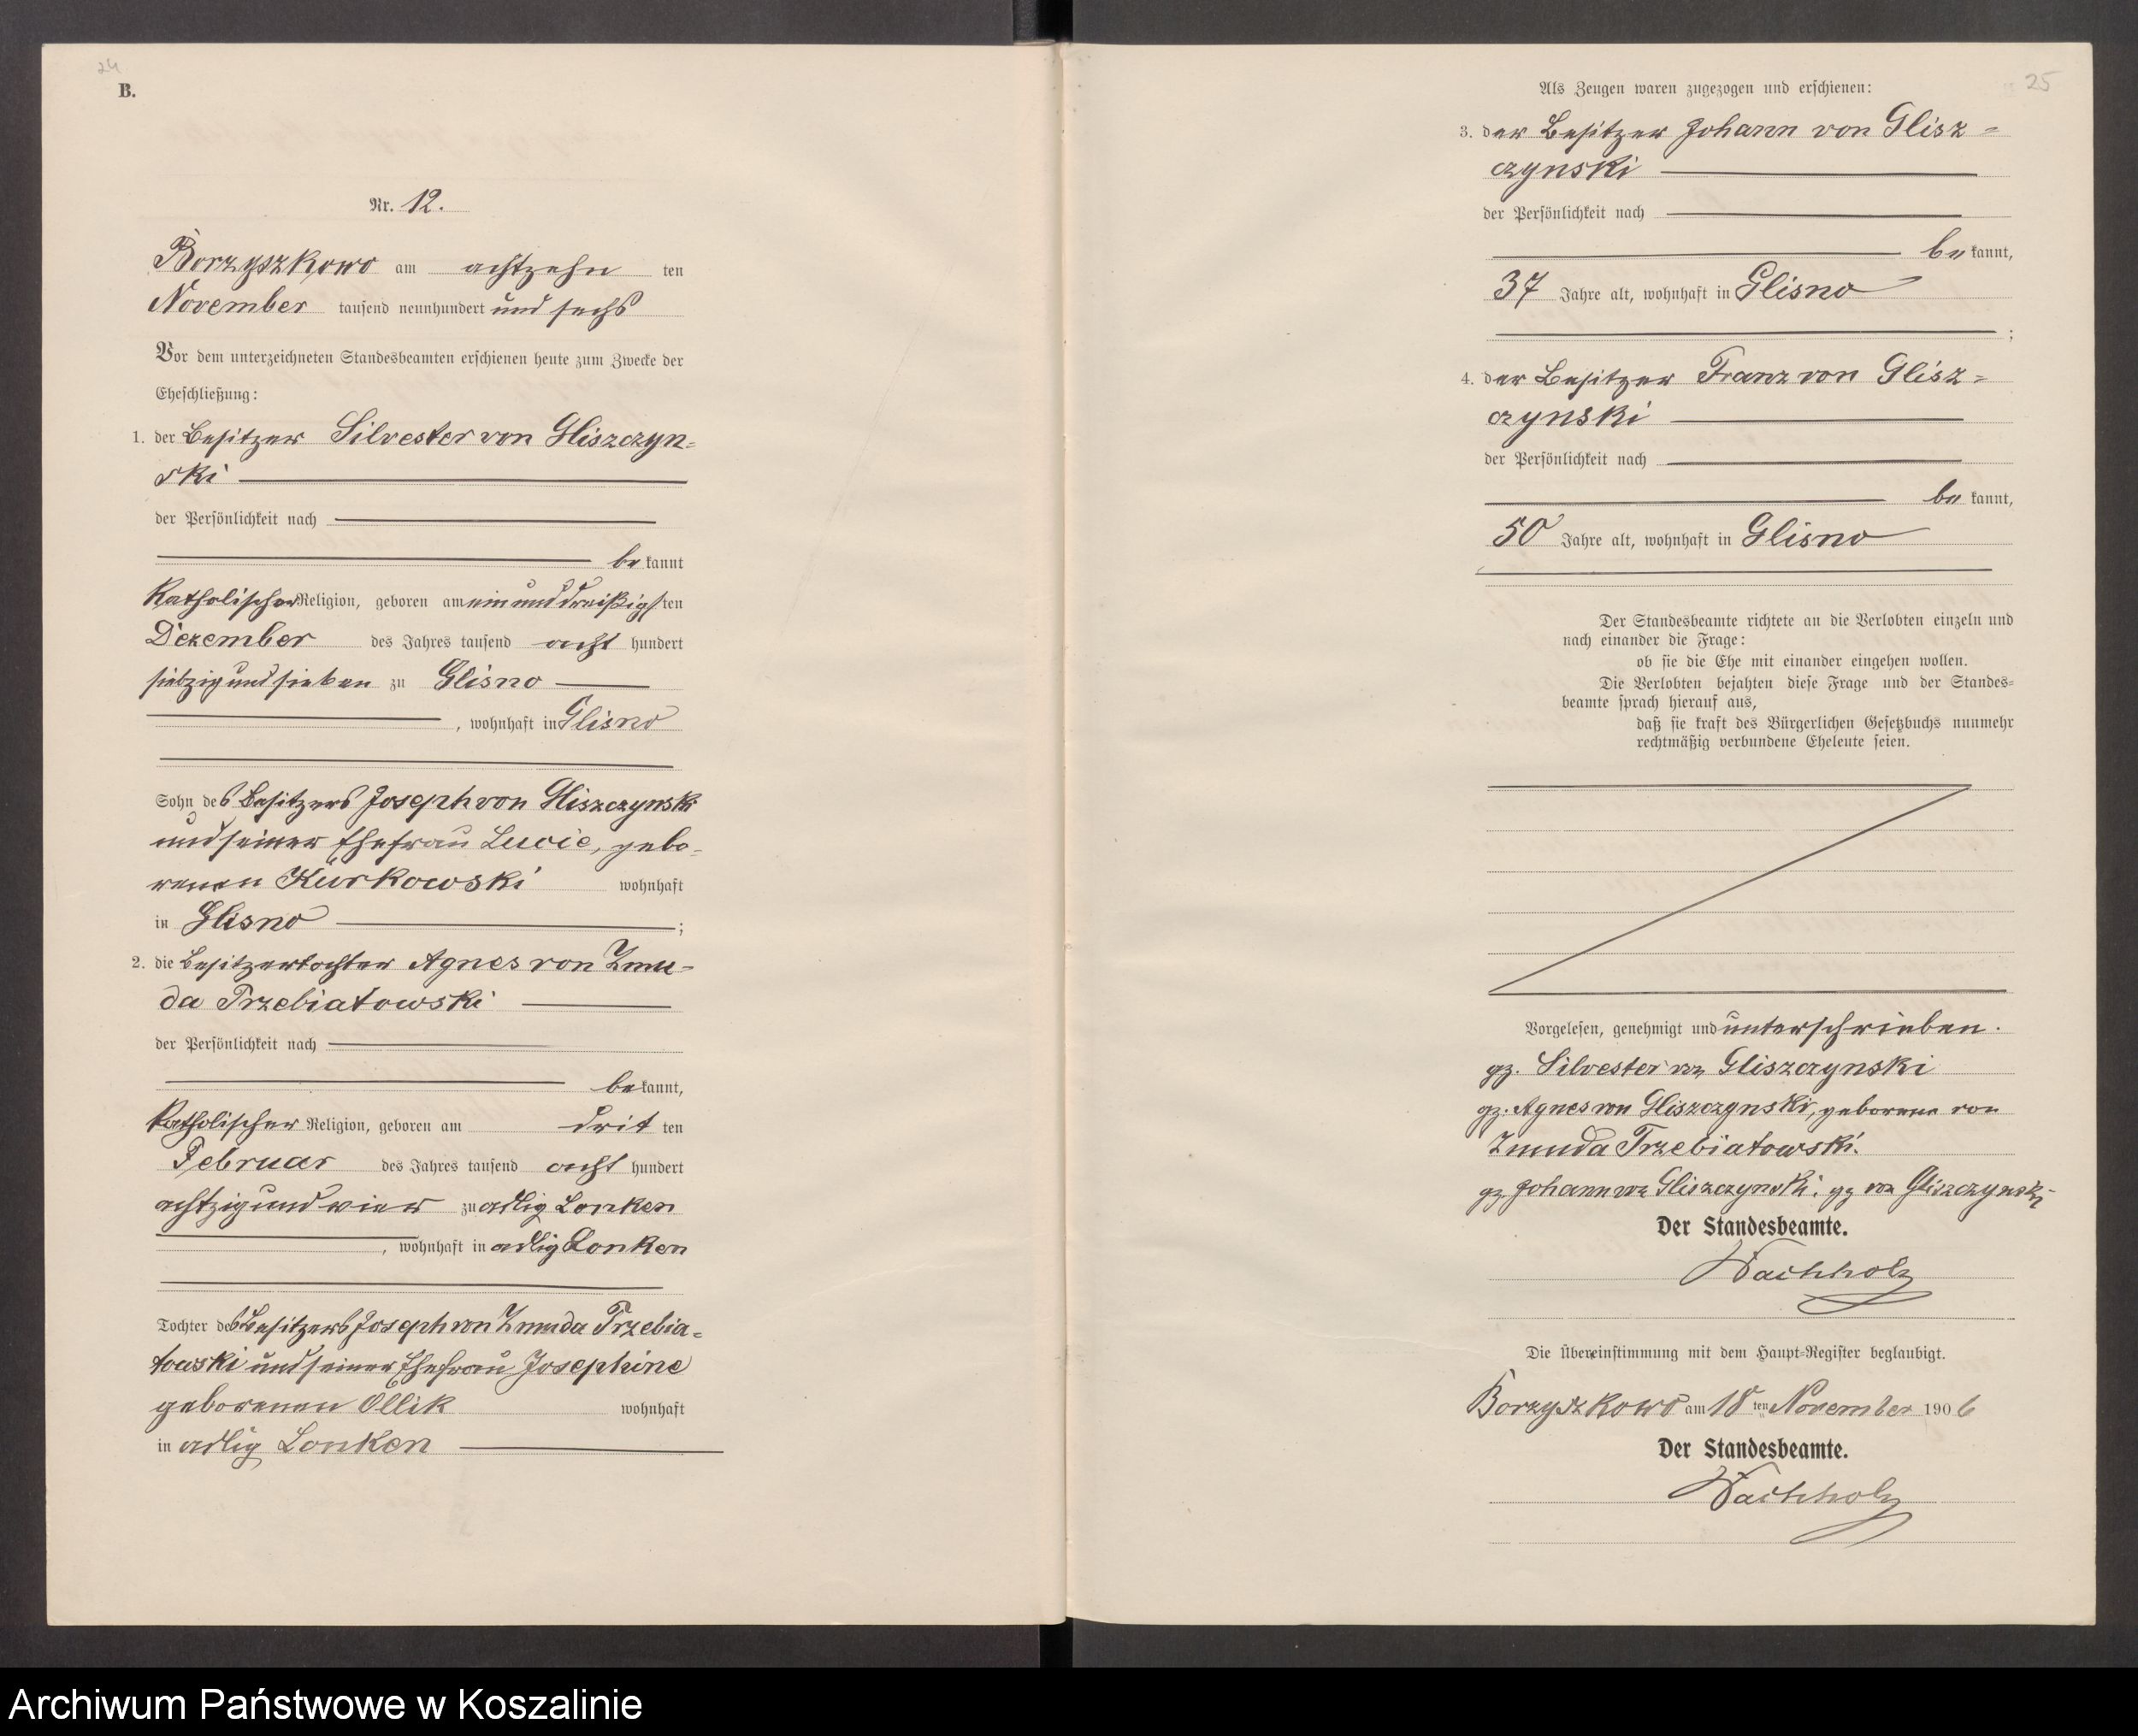 24
B.
Nr. 12.
Borzyszkowo am achtzehn ten
November tausend neunhundert und sechs
Vor dem unterzeichneten Standesbeamten erschienen heute zum Zwecke der
Eheschließung:
1. der Besitzer Silvester von Gliszczyn-
ski
der Persönlichkeit nach
be kannt
katholischer Religion, geboren am ein und dreißigsten
Dezember des Jahres tausend acht hundert
siebzig und sieben zu Glisno
, wohnhaft in Glisno
Sohn des Besitzers Joseph von Gliszczynski
und seiner Ehefrau Lucie, gebo-
renen Kurkowski wohnhaft
in Glisno ;
2. die Besitzertochter Agnes von Zmu-
da Trzebiatowski
der Persönlichkeit nach
be kannt,
katholischer Religion, geboren am drit ten
Februar des Jahres tausend acht hundert
achtzig und vier zu adlig Lonken
, wohnhaft in adlig Lonken
Tochter des Besitzers Joseph von Zmuda Trzebia-
towski und seiner Ehefrau Josephine
geborenen Ollik wohnhaft
in adlig Lonken
25
Als Zeugen waren zugezogen und erschienen:
3. der Besitzer Johann von Glisz-
czynski
der Persönlichkeit nach
be kannt,
37 Jahre alt, wohnhaft in Glisno
;
4. der Besitzer Franz von Glisz-
czynski
der Persönlichkeit nach
be kannt,
50 Jahre alt, wohnhaft in Glisno
Der Standesbeamte richtete an die Verlobten einzeln und
nach einander die Frage:
ob sie die Ehe mit einander eingehen wollen.
Die Verlobten bejahten diese Frage und der Standes-
beamte sprach hierauf aus,
daß sie kraft des Bürgerlichen Gesetzbuchs nunmehr
rechtmäßig verbundene Eheleute seien.
Vorgelesen, genehmigt und unterschrieben.
gz. Silvester von Gliszczynski
gz. Agnes von Gliszczynski, geborene von
Zmuda Trzebiatowski.
gz Johann von Gliszczynski. gz von Gliszczynski
Der Standesbeamte.
Wachholz
Die Übereinstimmung mit dem Haupt-Register beglaubigt.
Borzyszkowo am 18 ten November 1906
Der Standesbeamte.
Wachholz
Archiwum Państwowe w Koszalinie